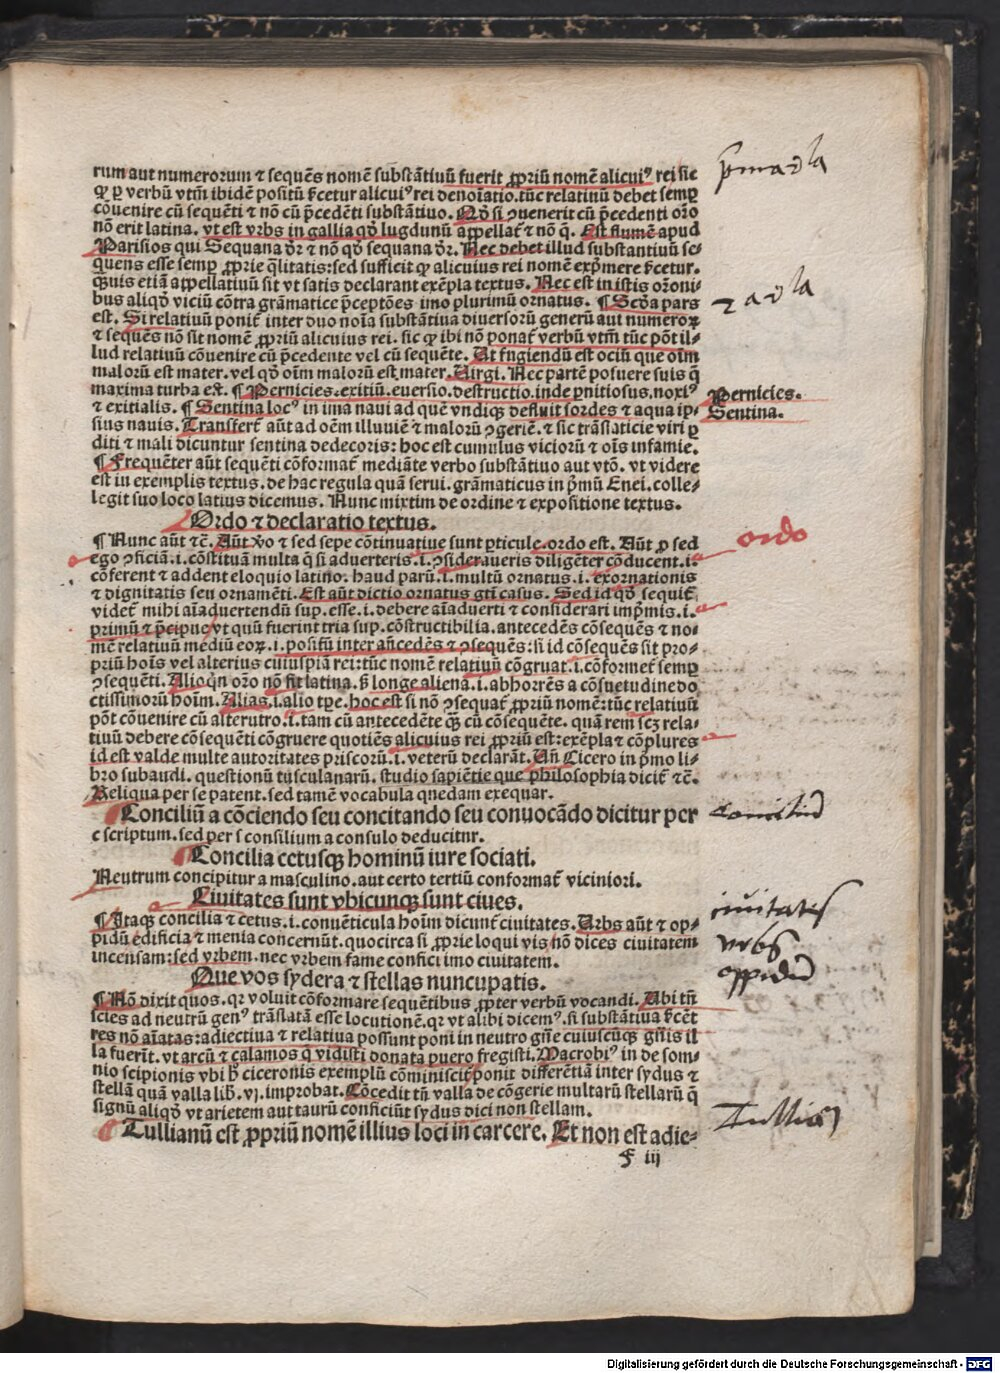 rum aut numerorum ⁊ sequēs nomē substātiuū fuerit ꝓpriū nomē alicuiꝰ rei sic
ꝙ ꝑ verbū vtm̄ ibidē positū fcetur alicuiꝰ rei denoīatio. tūc relatiuū debet semꝑ
cōuenire cū sequēti ⁊ nō cū p̄cedēti substātiuo. Nō si ꝯuenerit cū p̄cedenti orō
nō erit latina. vt est vrbs in gallia qd̄ lugdunū appellat̄ ⁊ nō q̄. Est flumē apud
Parisios qui Sequana dr̄ ⁊ nō qd̄ sequana dr̄. Nec debet illud substantiuū se⸗
quens esse semꝑ ꝓprie q̄litatis: sed sufficit ꝙ alicuius rei nomē exp̄mere fcetur.
q̄uis etiā appellatiuū sit vt satis declarant exēpla textus. Nec est in istis orōni⸗
bus aliqd̄ viciū cōtra grāmatice p̄ceptōes imo plurimū ornatus. ¶ Scd̄a pars
est. Si relatiuū ponit̄ inter duo noīa substātiua diuersorū generū aut numeroꝝ
⁊ sequēs nō sit nomē ꝓpriū alicuius rei. sic ꝙ ibi nō ponat̄ verbū vtm̄ tūc pōt il⸗
lud relatiuū cōuenire cū p̄cedente vel cū sequēte. Ut fugiendū est ociū que oīm
malorū est mater. vel qd̄ oīm malorū est mater. Virgi. Nec partē posuere suis q̄
maxima turba est. ¶ Pernicies. exitiū. euersio. destructio. inde ꝑnitiosus. noxiꝰ
⁊ exitialis. ¶ Sentina locꝰ in ima naui ad quē vndiqꝫ defluit sordes ⁊ aqua ip⸗
sius nauis. Transfert̄ aūt ad oēm illuuiē ⁊ malorū ꝯgeriē. ⁊ sic trāslaticie viri ꝑ
diti ⁊ mali dicuntur sentina dedecoris: hoc est cumulus viciorū ⁊ oīs infamie.
¶ Frequēter aūt sequēti cōformat̄ mediāte verbo substātiuo aut vtō. vt videre
est in exemplis textus. de hac regula quā serui. grāmaticus in p̄mū Enei. colle⸗
legit suo loco latius dicemus. Nunc mixtim de ordine ⁊ expositione textus.
Ordo ⁊ declaratio textus.
¶ Nunc aūt ⁊c̄. Aūt v̄o ⁊ sed sepe cōtinuatiue sunt ꝑticule. ordo est. Aūt ꝓ sed
ego ꝯficiā. i. cōstituā multa q̄ si aduerteris. i. ꝯsideraueris diligēter cōducent. i.
cōferent ⁊ addent eloquio latino. haud parū. i. multū ornatus. i. exornationis
⁊ dignitatis seu ornamēti. Est aūt dictio ornatus gt̄i casus. Sed id qd̄ sequit̄
videt̄ mihi aīaduertendū sup. esse. i. debere aīaduerti ⁊ considerari imp̄mis. i.
primū ⁊ p̄cipue vt quū fuerint tria sup. cōstructibilia. antecedēs cōsequēs ⁊ no⸗
mē relatiuū mediū eoꝝ. i. positū inter an̄cedēs ⁊ ꝯsequēs: si id cōsequēs sit pro⸗
priū hoīs vel alterius cuiuspiā rei: tūc nomē relatiuū cōgruat. i. cōformet̄ semꝑ
ꝯsequēti. Alioq̄n orō nō fit latina. s̄ longe aliena. i. abhorrēs a cōsuetudine do
ctissimorū hoīm. Alias. i. alio tꝑe. hoc est si nō ꝯsequat̄ ꝓpriū nomē: tūc relatiuū
pōt cōuenire cū alterutro. i. tam cū antecedēte q̄ꝫ cū cōsequēte. quā rem scꝫ rela⸗
tiuū debere cōsequēti cōgruere quotiēs alicuius rei ꝓpriū est: exēpla ⁊ cōplures
id est valde multe autoritates priscorū. i. veterū declarāt. Un̄ Cicero in p̄mo li⸗
bro subaudi. questionū tusculanarū. studio sapiētie que philosophia dicit̄ ⁊c̄.
Reliqua per se patent. sed tamē vocabula quedam exequar.
Conciliū a cōciendo seu concitando seu conuocādo dicitur per
c scriptum. sed per s consilium a consulo deducitur.
Concilia cetusqꝫ hominū iure sociati.
Neutrum concipitur a masculino. aut certo tertiū conformat̄ viciniori.
Ciuitates sunt vbicunqꝫ sunt ciues.
¶ Itaqꝫ concilia ⁊ cetus. i. conuēticula hoīm dicunt̄ ciuitates. Urbs aūt ⁊ op⸗
pidū edificia ⁊ menia concernūt. quocirca si ꝓprie loqui vis nō dices ciuitatem
incensam: sed vrbem. nec vrbem fame confici imo ciuitatem.
Que vos sydera ⁊ stellas nuncupatis.
¶ Nō dixit quos. qꝛ voluit cōformare sequētibus ꝓpter verbū vocandi. Ubi tn̄
scies ad neutrū genꝰ trāslatā esse locutionē. qꝛ vt alibi dicemꝰ. si substātiua fcēt
res nō aīatas: adiectiua ⁊ relatiua possunt poni in neutro gn̄e cuiuscūqꝫ gn̄is il
la fuerīt. vt arcū ⁊ calamos q̄ vidisti donata puero fregisti. Macrobiꝰ in de som⸗
nio scipionis vbi h̄ ciceronis exemplū cōminiscit̄ ponit differētiā inter sydus ⁊
stellā quā valla lib. vj. improbat. Cōcedit tn̄ valla de cōgerie multarū stellarū q̄
signū aliqd̄ vt arietem aut taurū conficiūt sydus dici non stellam.
Tullianū est ꝓpriū nomē illius loci in carcere. Et non est adie⸗
f iii
Pernicies.
Sentina.
ordo
Conciliū
ciuitates
vrbs
oppidū